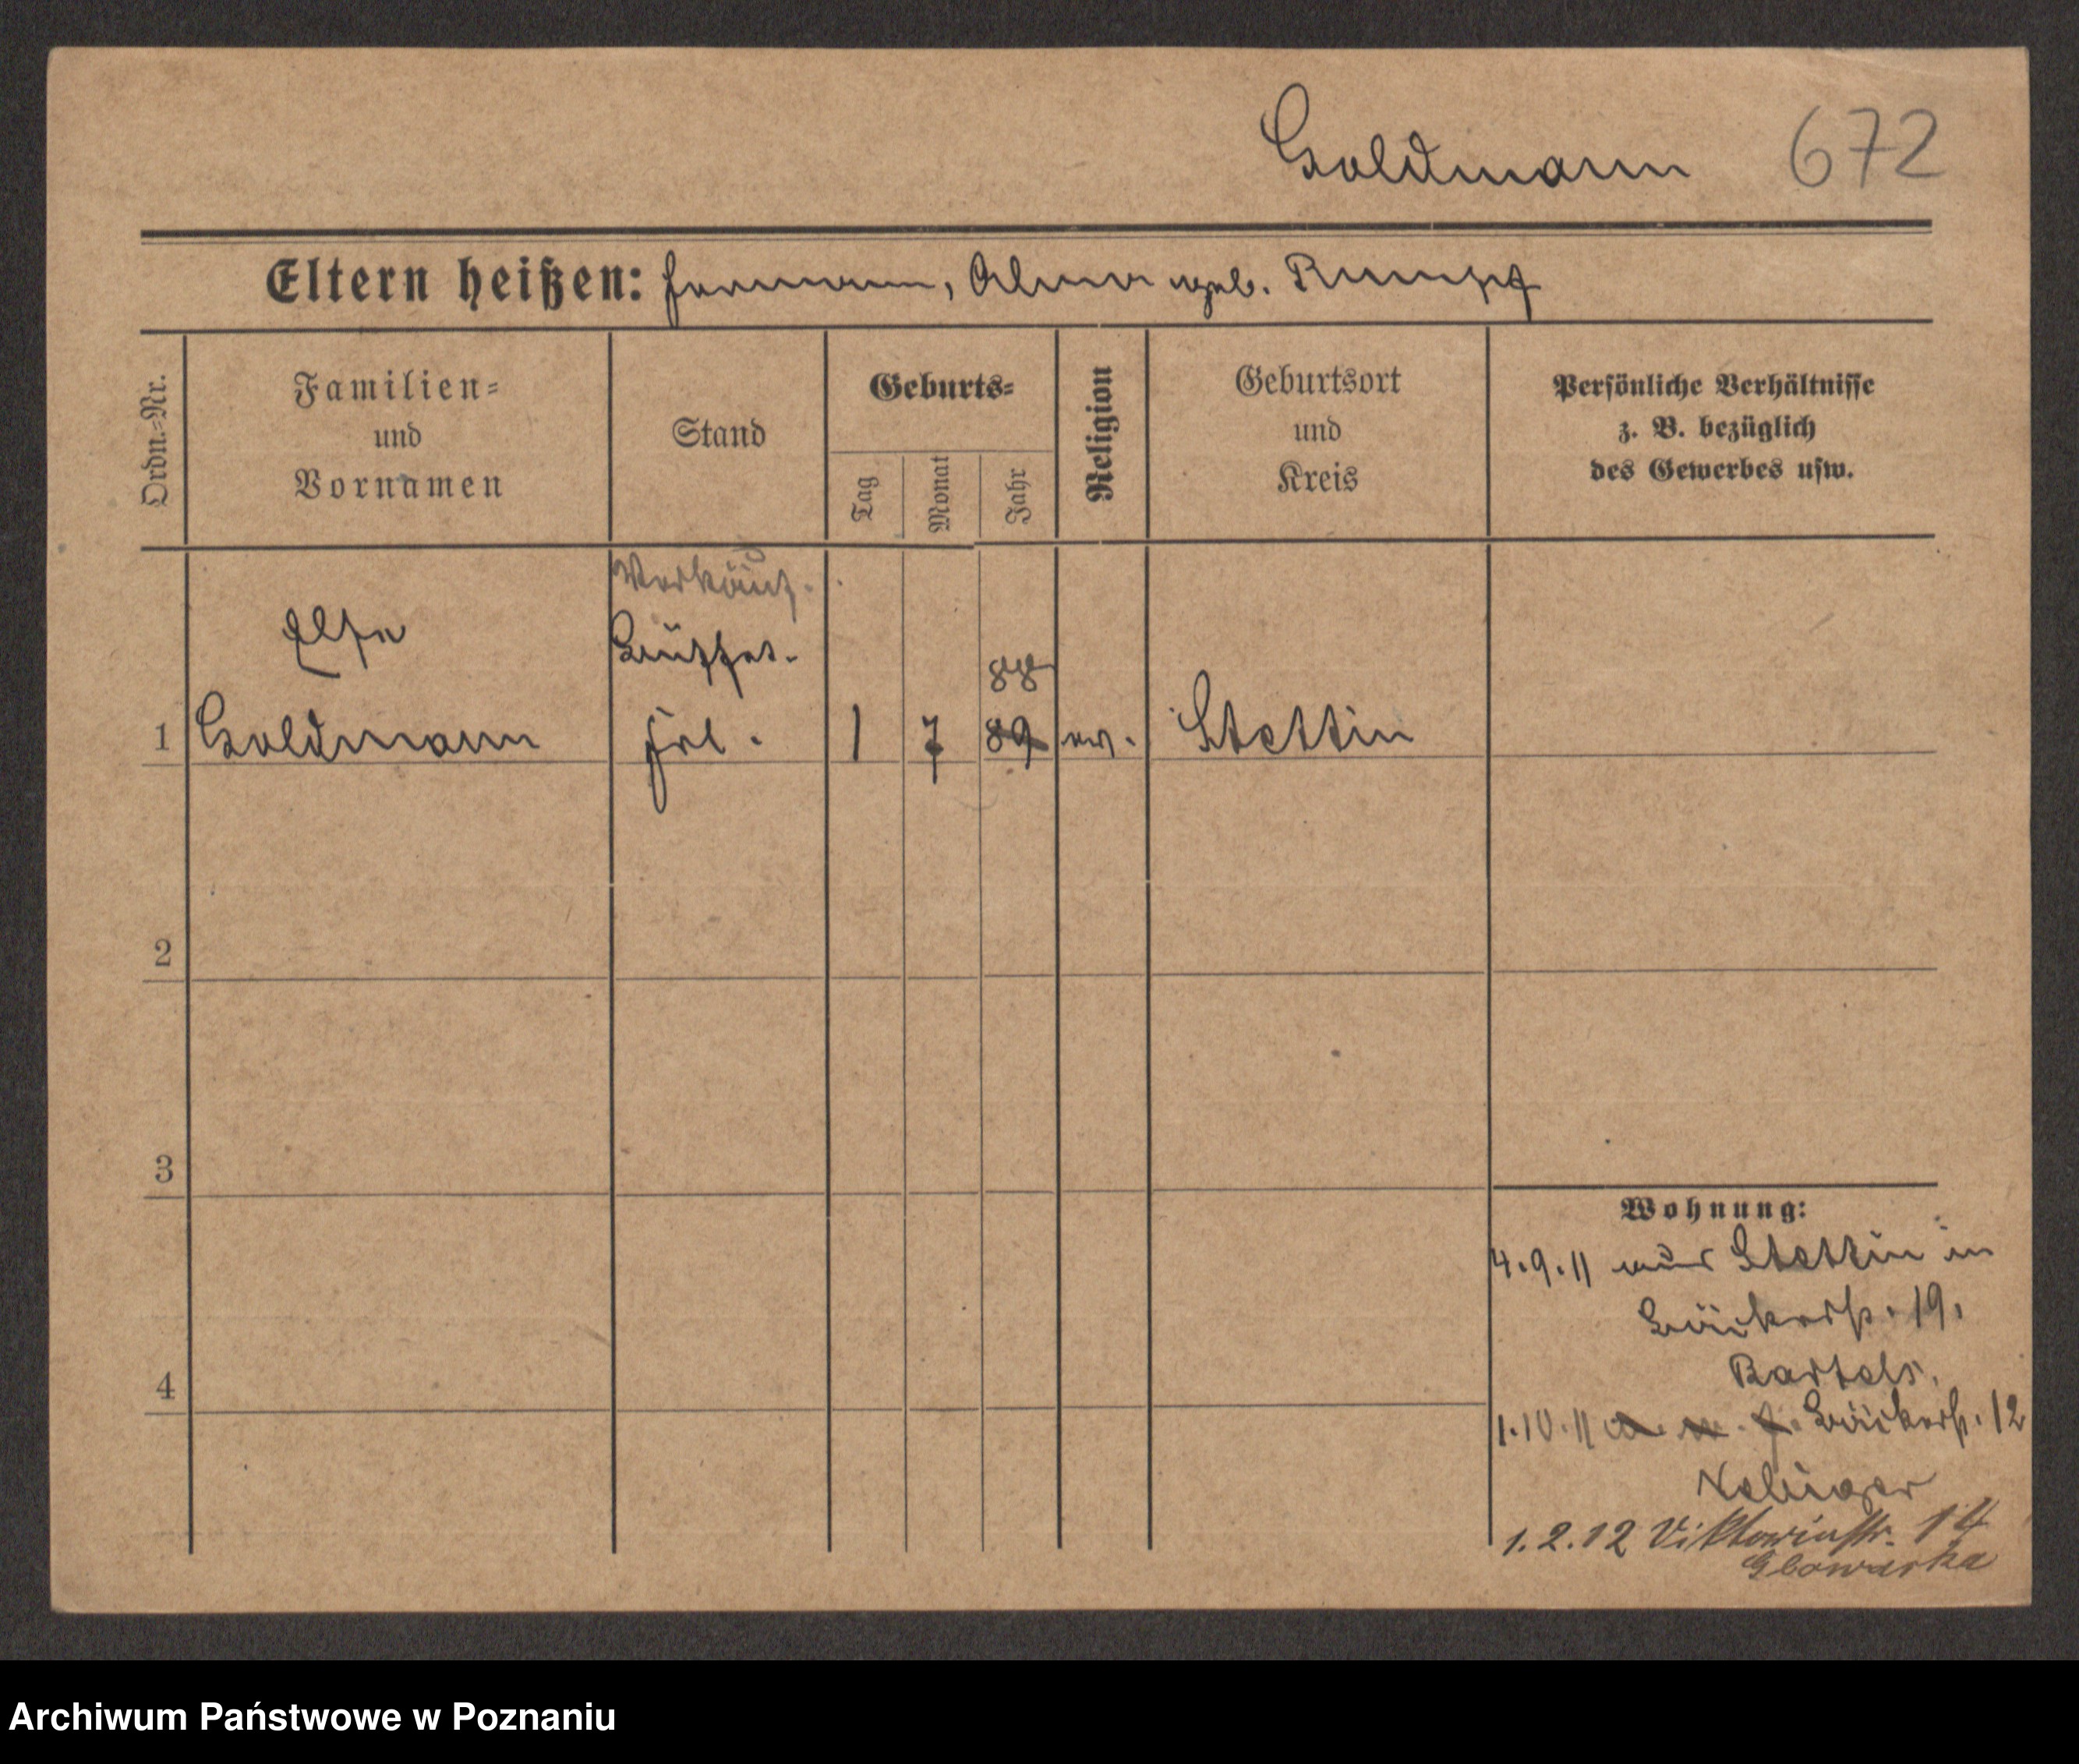 Goldmann 672
Eltern heißen: Hermann, Alma geb. Rumpf
Ordn.-Nr.
Familien-
und
Vornamen
Stand
Geburts-
Tag
Monat
Jahr
Religion
Geburtsort
und
Kreis
Persönliche Verhältnisse
z. B. bezüglich
des Gewerbes usw.
Verkäuf.
Else
Büffet-
88
1 Goldmann frl. 1 7 89 ev. Stettin
2
3
4
Wohnung:
4.9.11 aus Stettin in
Bäckerstr. 19.
Bartels.
1.10.11 Bäckerstr. 12
1.2.12 Viktoriastr. 14